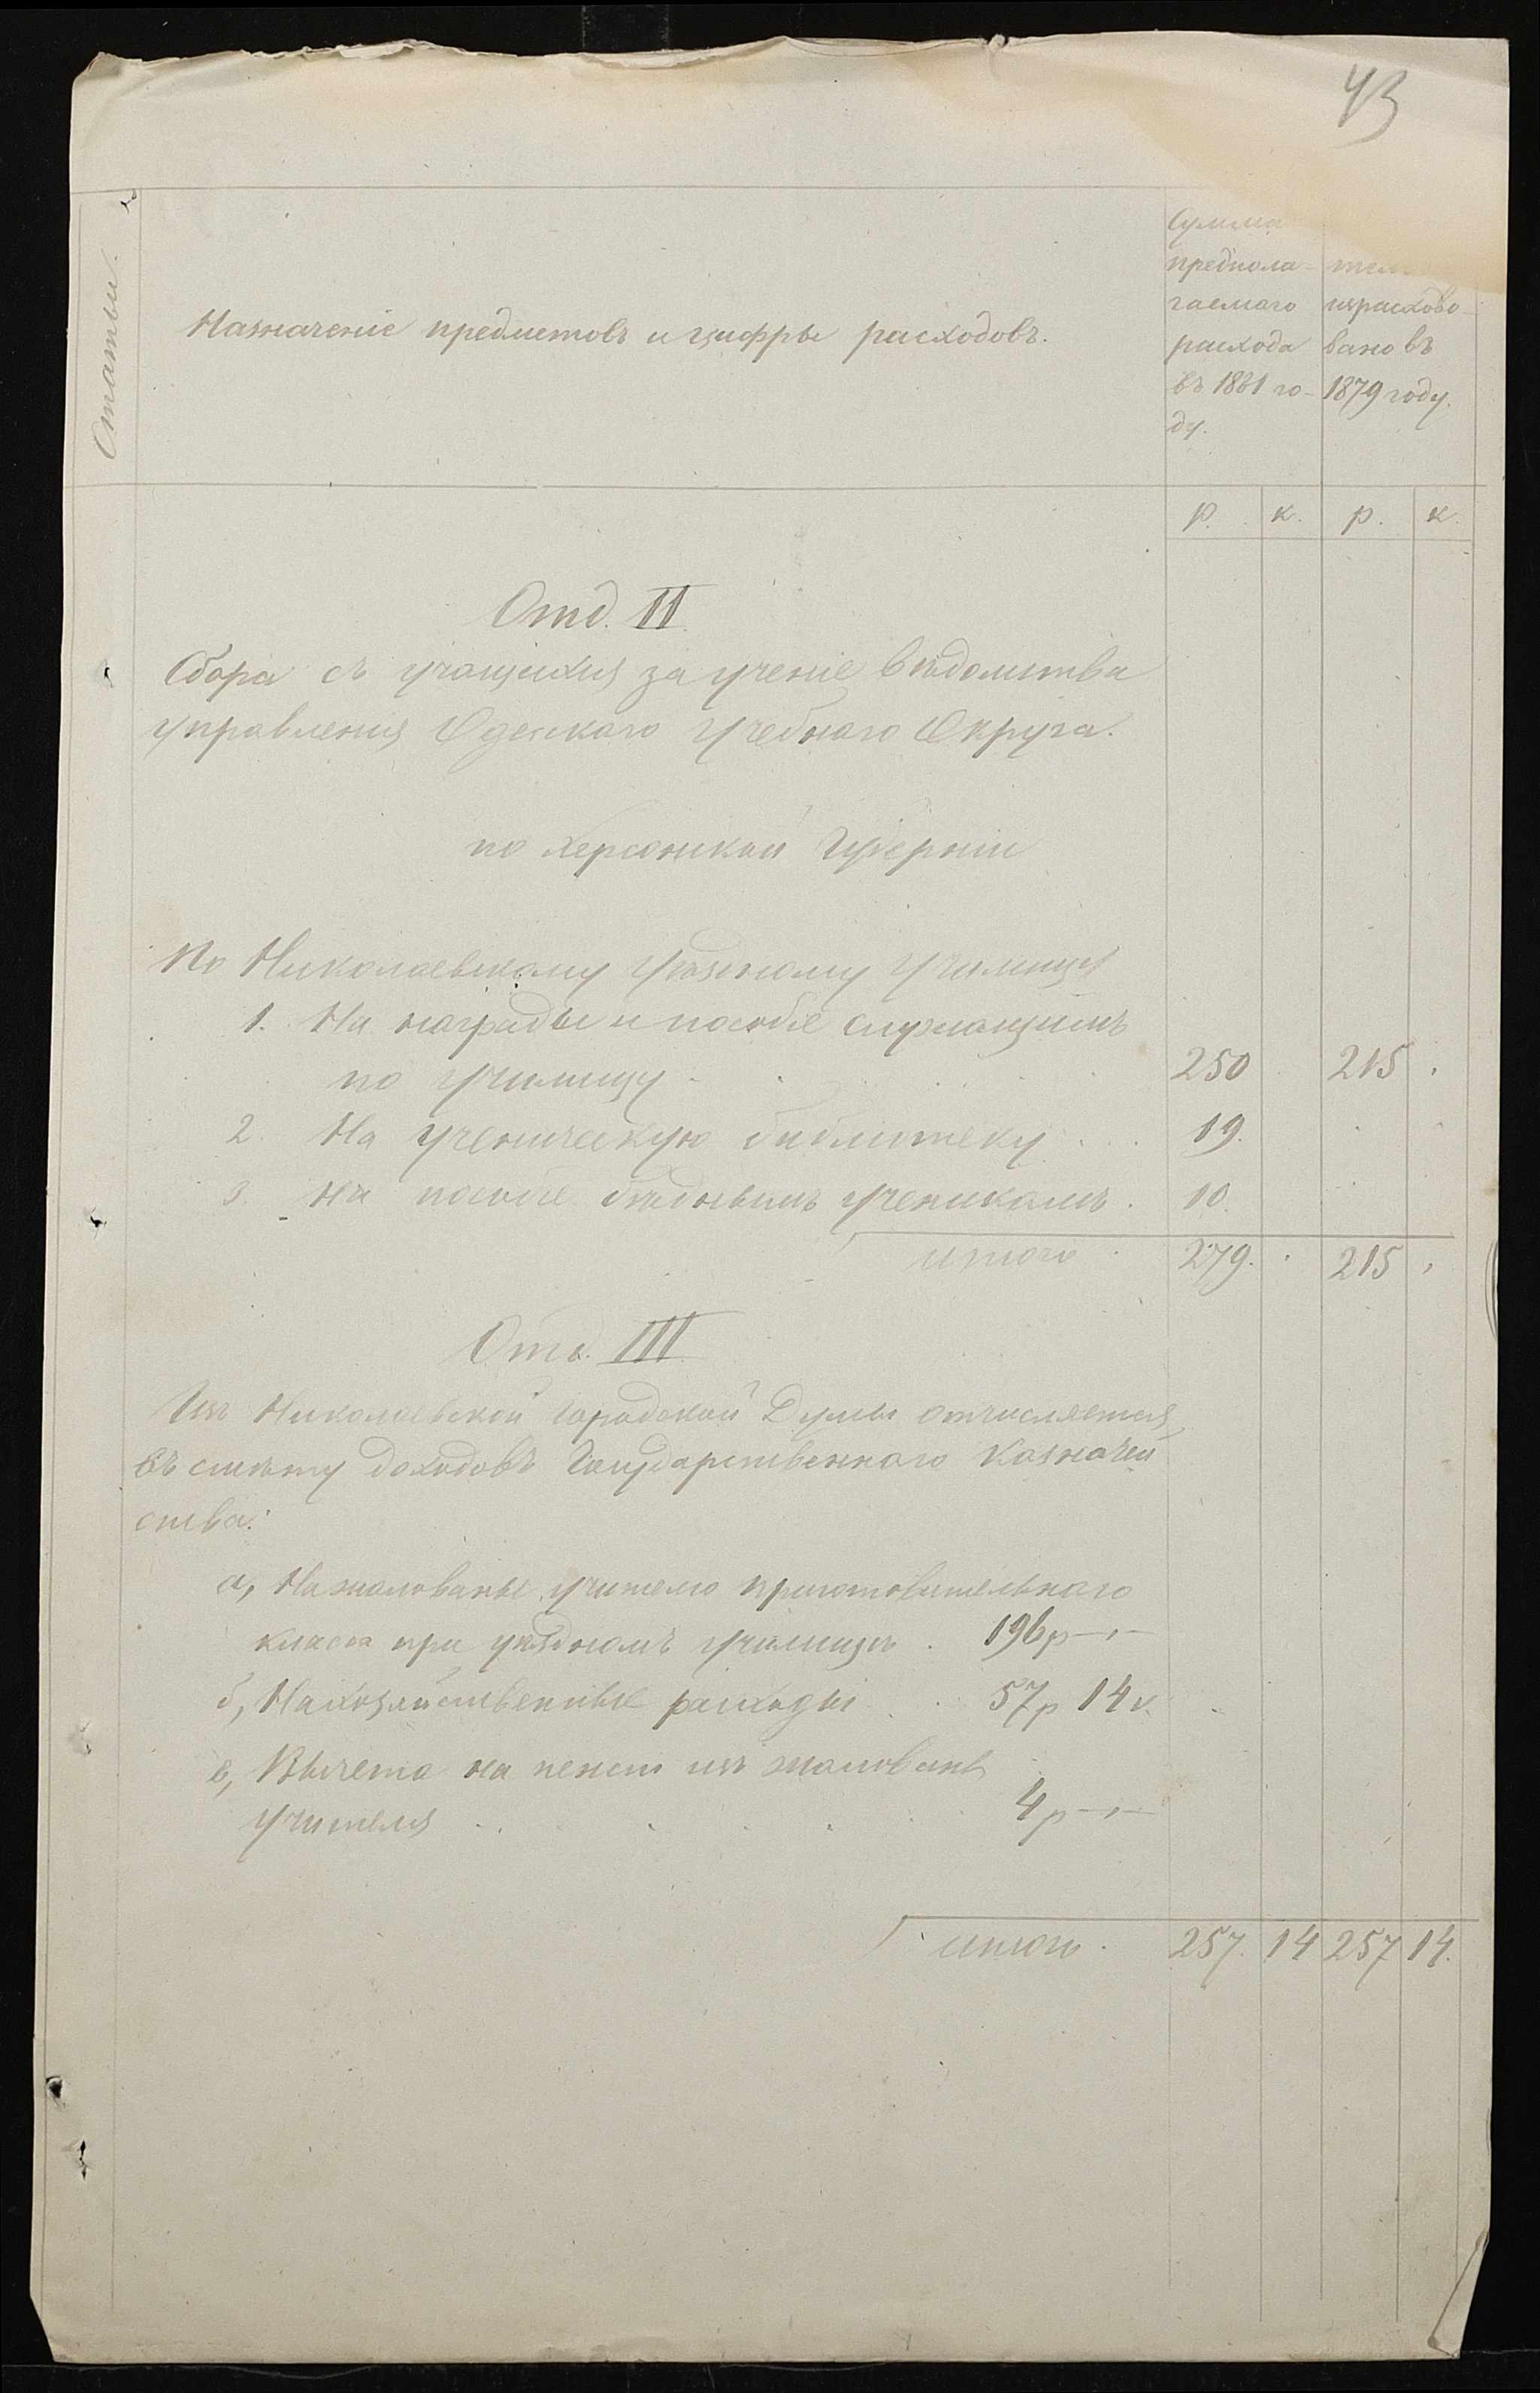 43
Статьи.
Назначеніе предметовъ и цифры расходовъ.
Сумма
предпола-
гаемаго
расхода
въ 1881 го-
ду.
тел
израсходо-
вано въ
1879 году.
р. к. р. к.
Отд. II
Сбора съ учащихся за ученіе вѣдомства
управленія Одесскаго Учебнаго Округа.
по Херсонской Губерніи
По Николаевскому Уѣздному Училищу
1. На награды и пособіе служащимъ
по училищу 250 215
2. На ученическую библіотеку 19.
3. На пособіе бѣднымъ ученикамъ 10.
итого 279. 215
Отд. III
Изъ Николаевской Городской Думы отчисляется
въ смѣту доходовъ Государственнаго Казначей
ства:
а, На жалованье учителю приготовительнаго
класса при уѣздномъ училищѣ 196 р —
б, На хозяйственные расходы 57 р 14 к.
в, Вычета на пенсіи изъ жалованья
учителя 4 р —
итого 257. 14 257 14.